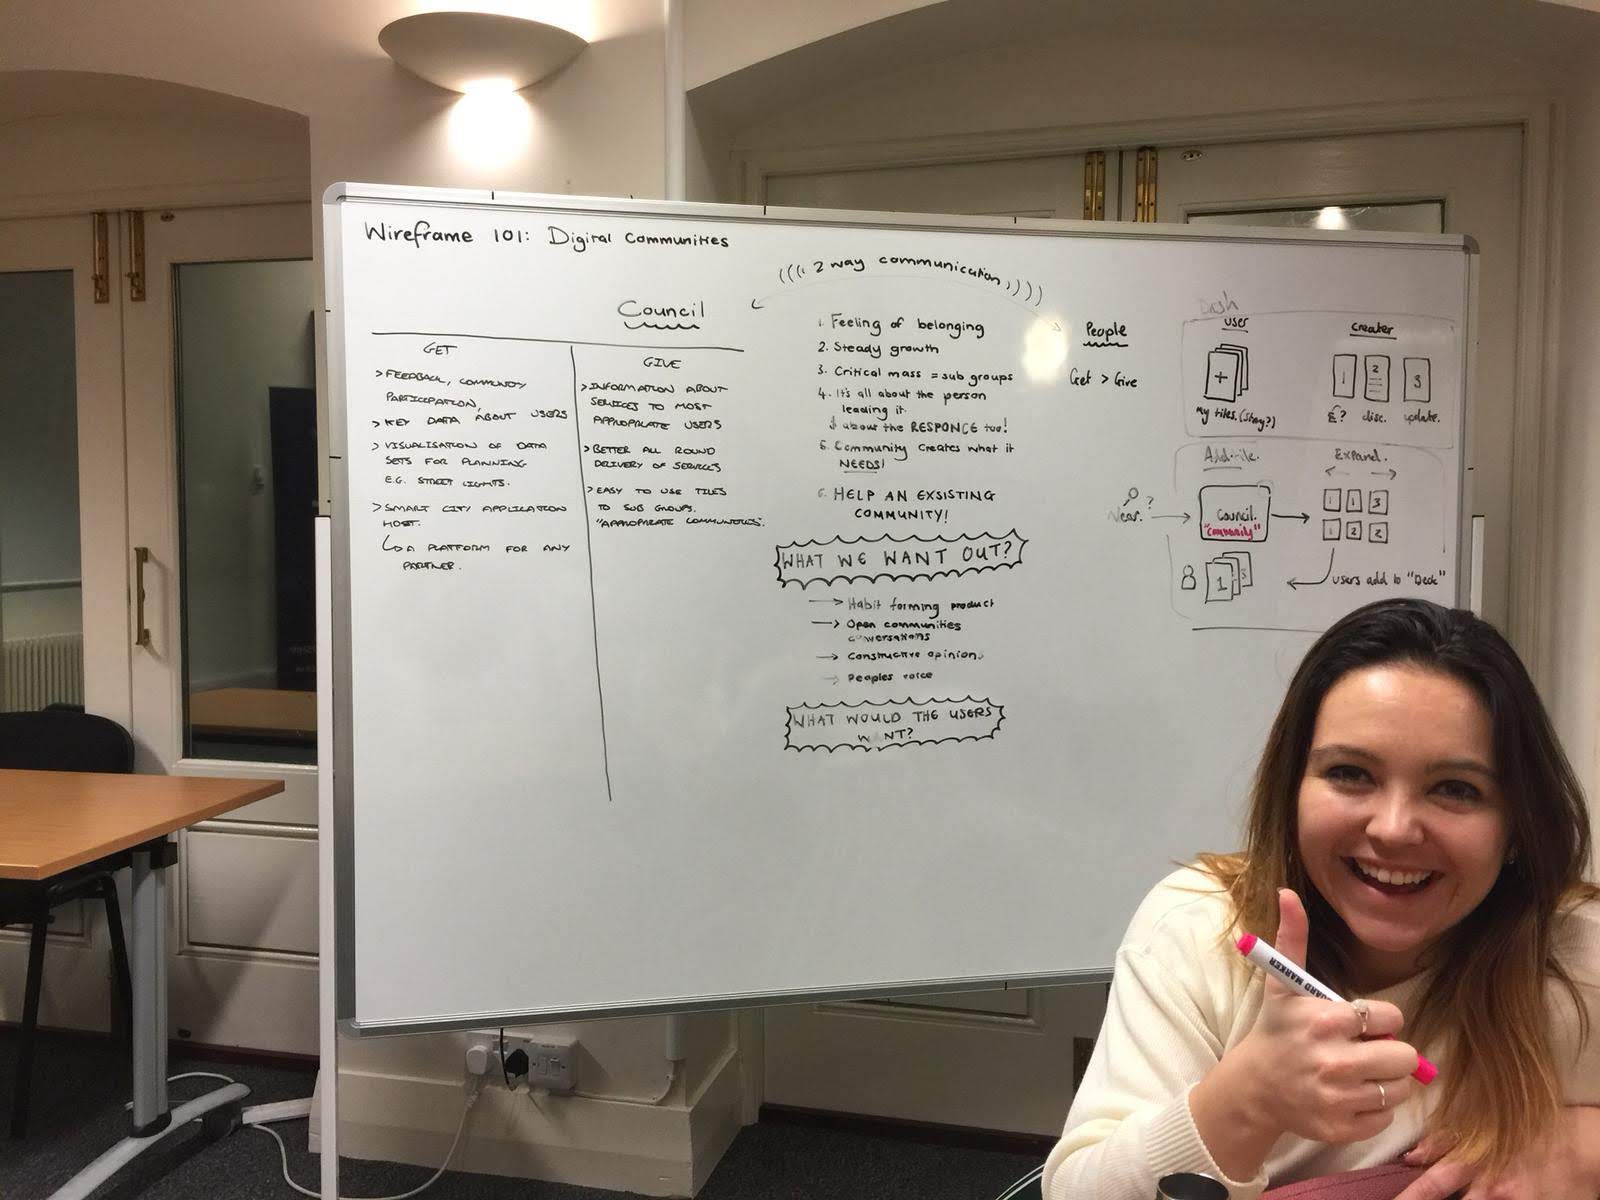 Wireframe 101: Digital Communities
(((( 2 way communication ))))
Council
GET
> FEEDBACK, COMMUNITY
PARTICIPATION,
> KEY DATA ABOUT USERS
> VISUALISATION OF DATA
SETS FOR PLANNING
E.G. STREET LIGHTS.
> SMART CITY APPLICATION
HOST.
↳ A PLATFORM FOR ANY
PARTNER.
GIVE
> INFORMATION ABOUT
SERVICES TO MOST
APPROPRIATE USERS
> BETTER ALL ROUND
DELIVERY OF SERVICES
> EASY TO USE TILES
TO SUB GROUPS.
"APPROPRIATE COMMUNITIES".
1. Feeling of belonging
2. Steady growth
3. Critical mass = sub groups
4. It's all about the person
leading it.
& about the RESPONCE too!
5. Community creates what it
NEEDS!
6. HELP AN EXSISTING
COMMUNITY!
WHAT WE WANT OUT?
→ Habit forming product
→ Open communities
conversations
→ Constructive opinion.
→ Peoples voice
WHAT WOULD THE USERS
WANT?
People
Get > Give
Dash
user
+
My tiles. (String?)
creater
1 2 3
£? disc. update.
Add tile.
Expand.
Near.?
Council.
"community"
1 1 3
1 2 2
users add to "Deck"
1 3
BOARD MARKER